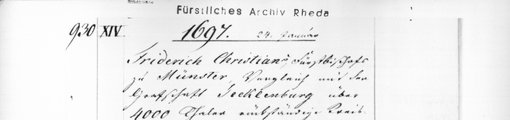 Fürstliches Archiv Rheda
930 XIV. 1697. 24. Januar
Friderich Christian, Fürstbischofs
zu Münster, Vergleich mit der
Grafschaft Tecklenburg über
4000 Thaler rückständige Kreis-